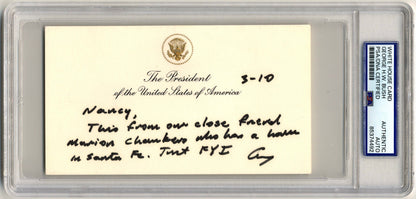 The President
of the United States of America
3-10
Nancy,
This from our close friend
Marion Chambers who has a home
in Santa Fe. Just FYI
WHITE HOUSE CARD
GEORGE H.W. BUSH
PSA/DNA CERTIFIED
AUTHENTIC
AUTO